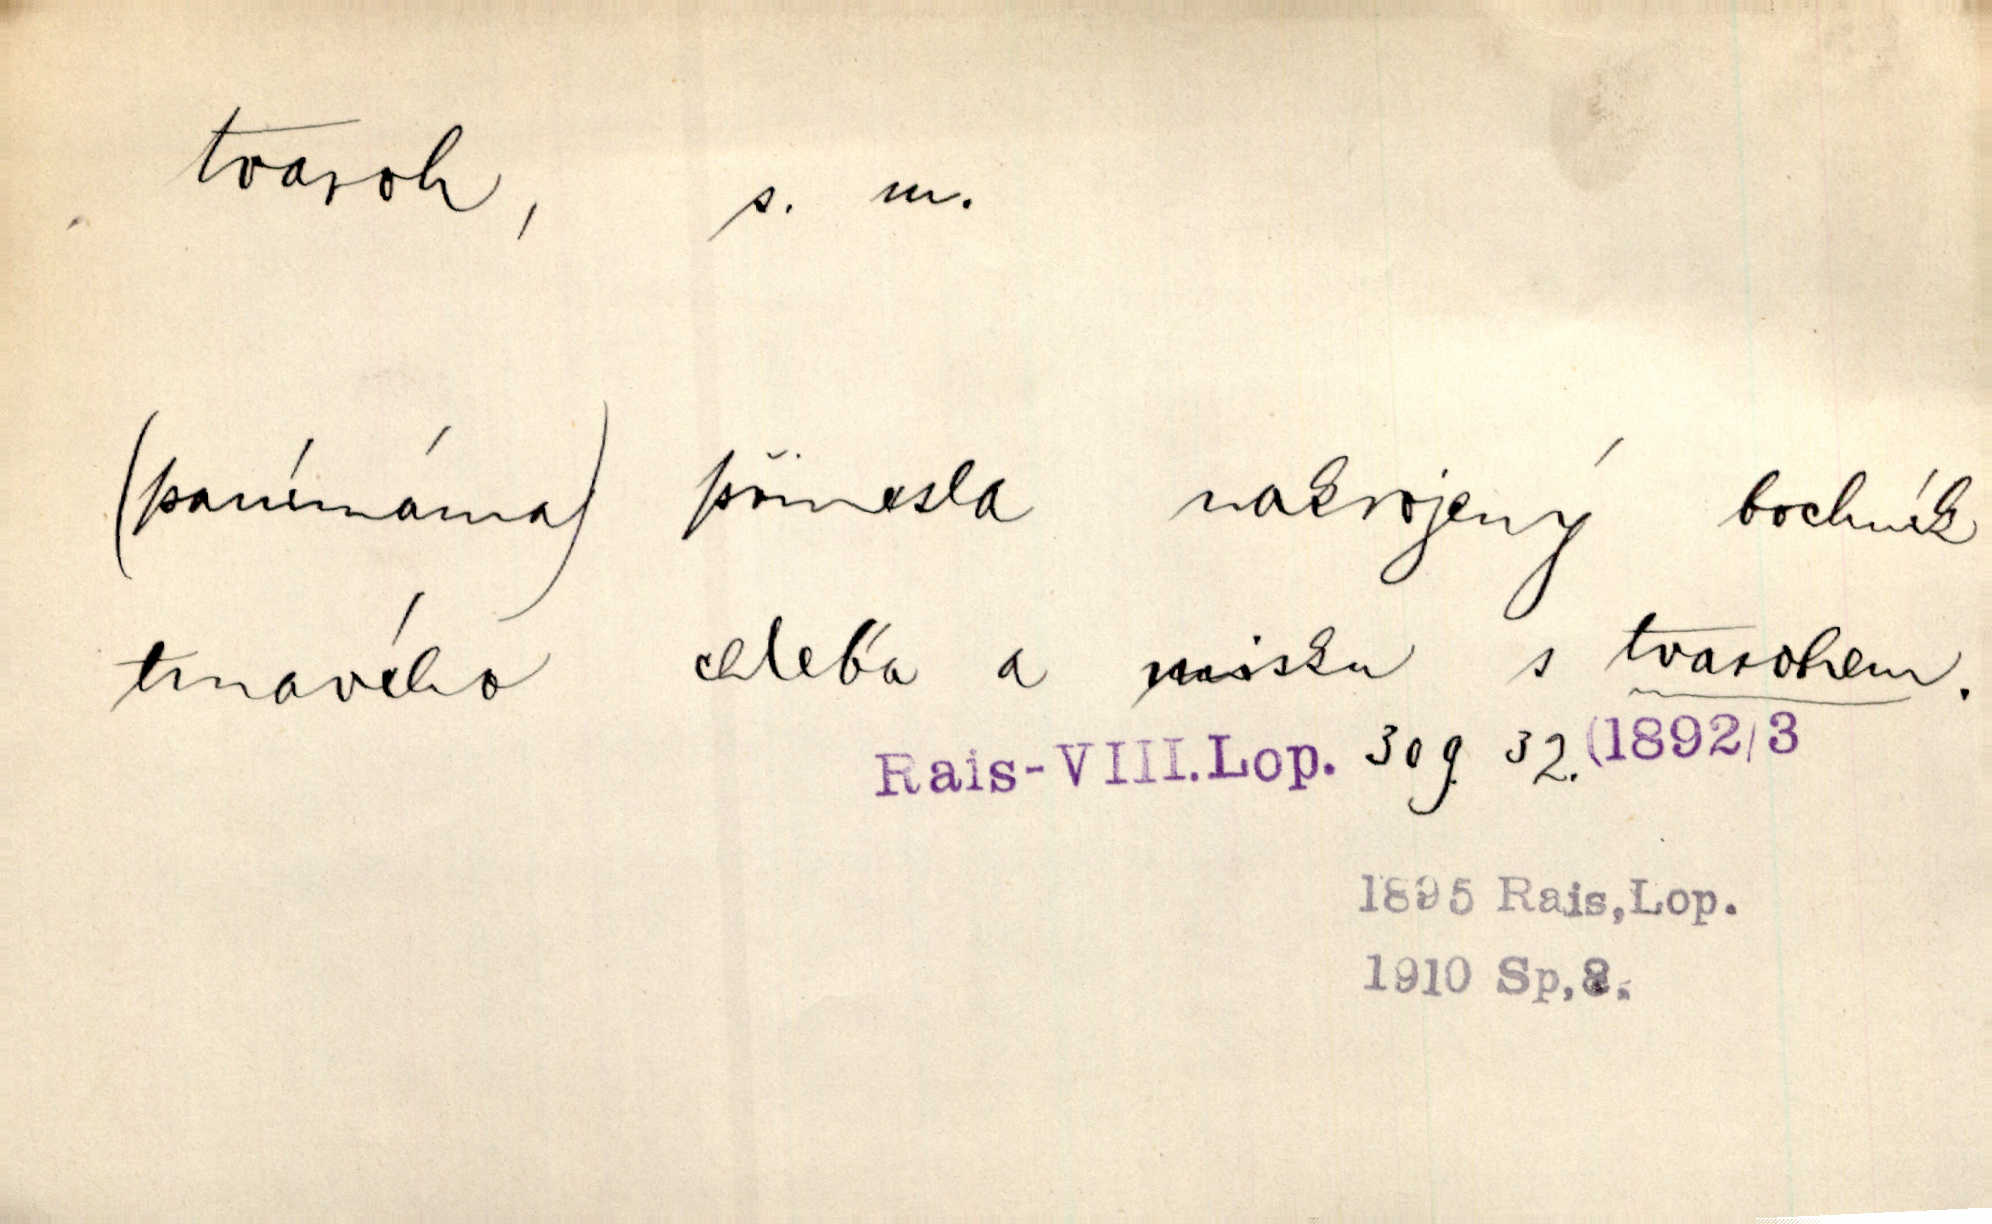 tvaroh, s. m.
(panímáma) přinesla nakrojený bochník
tmavého chleba a misku s tvarohem.
Rais-VIII.Lop. 309 32.(1892/3
1895 Rais,Lop.
1910 Sp,8.